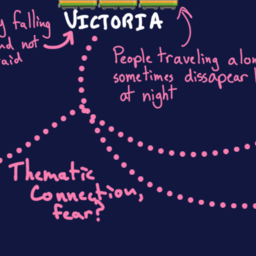 falling
VICTORIA
not
People traveling
sometimes dissapear
at night
Thematic
Connection,
fear?